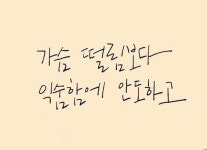 가슴 떨림보다
익숨함에 안도하고